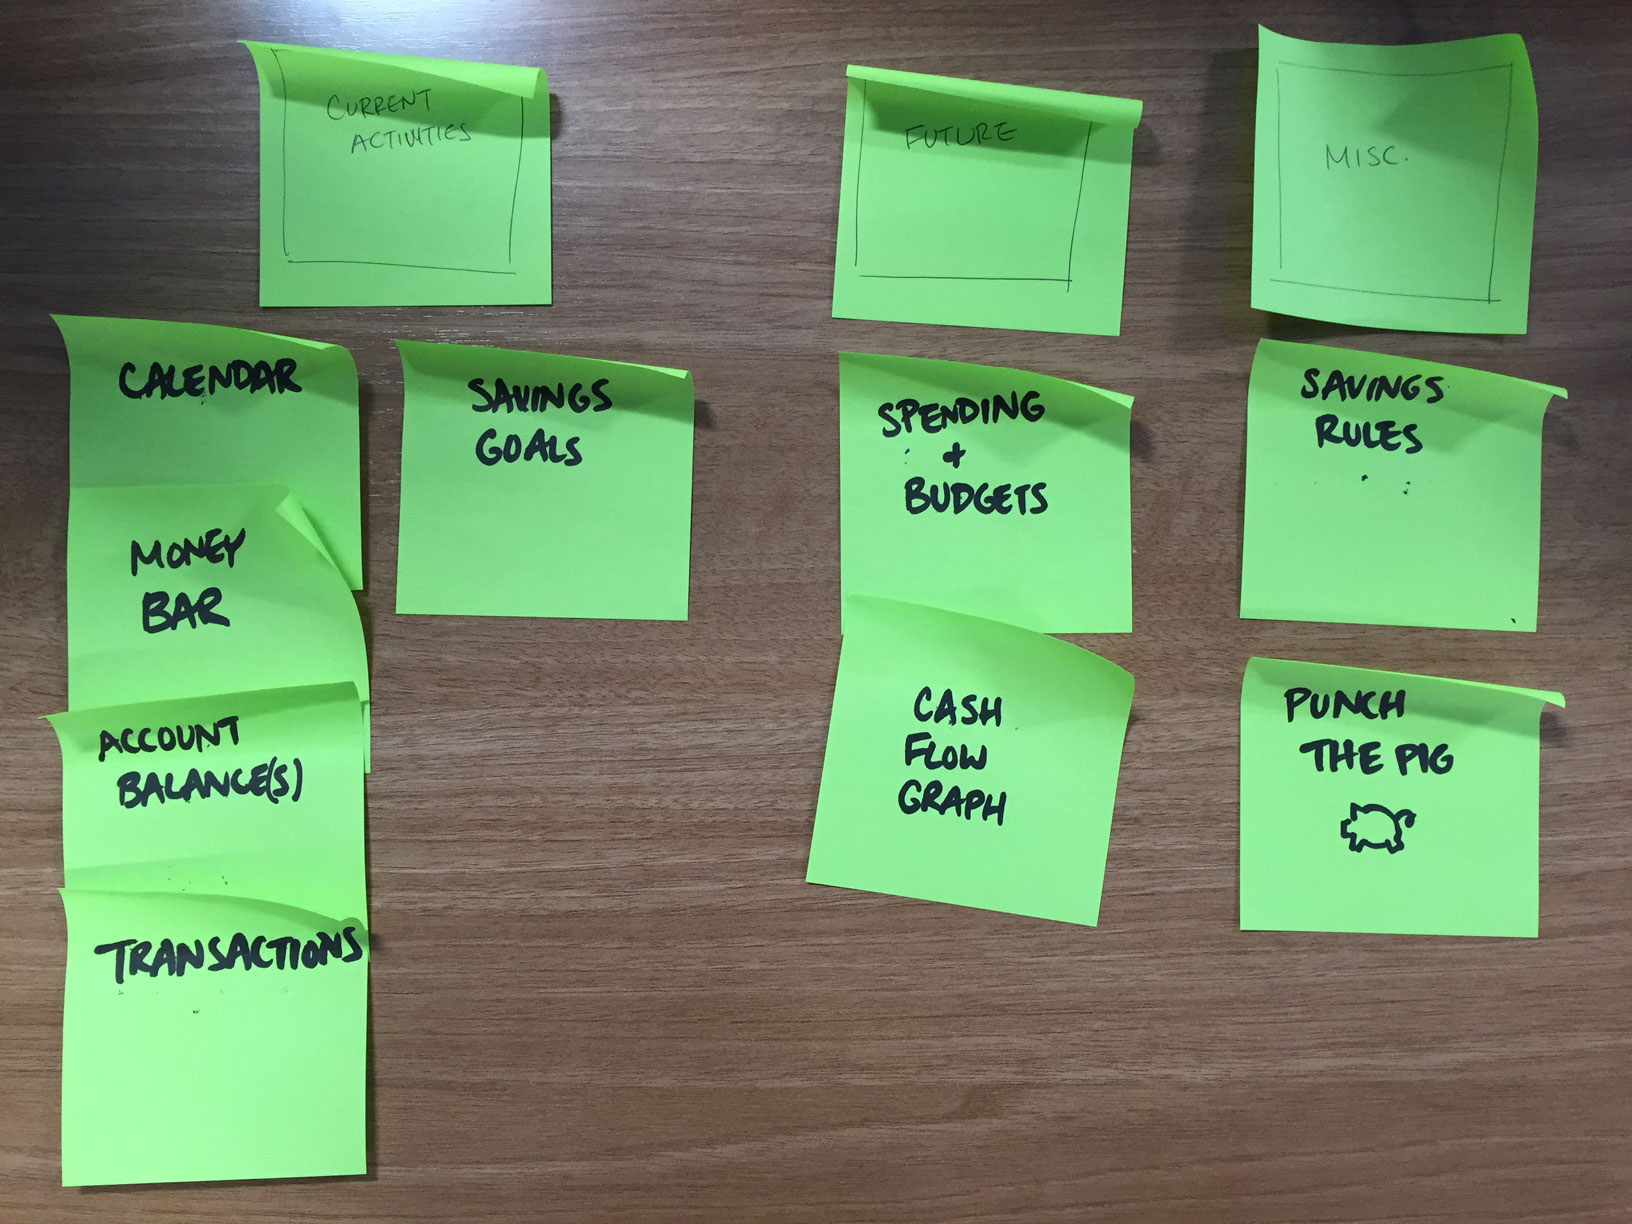 CURRENT
ACTIVITIES
FUTURE
MISC.
CALENDAR
MONEY
BAR
ACCOUNT
BALANCE(S)
TRANSACTIONS
SAVINGS
GOALS
SPENDING
+
BUDGETS
CASH
FLOW
GRAPH
SAVINGS
RULES
PUNCH
THE PIG